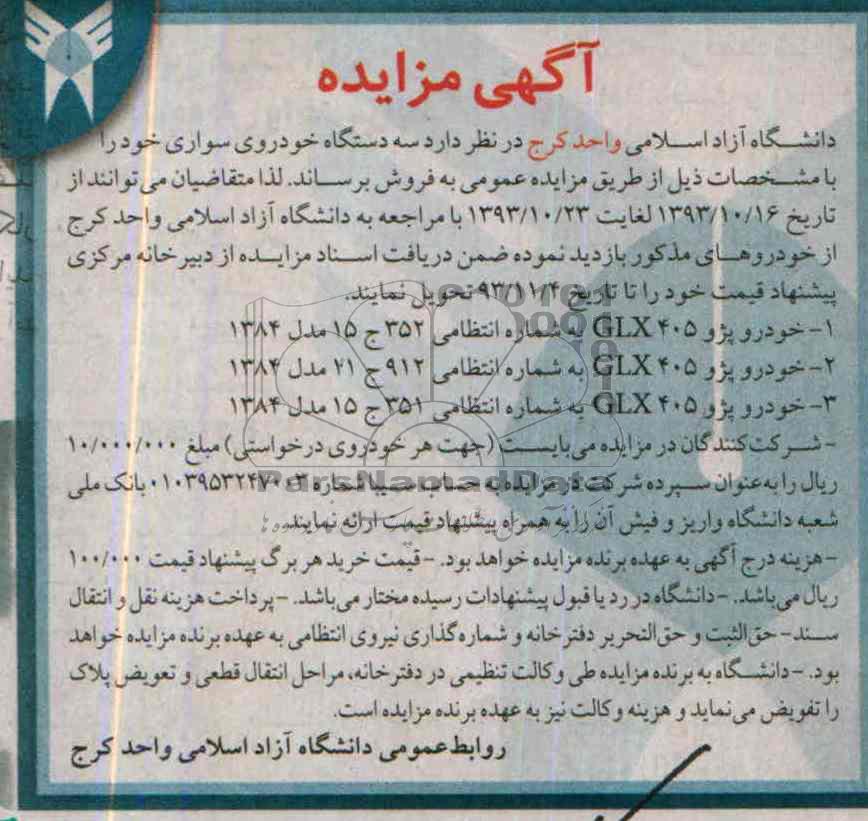 آگهی مزایده
دانشگاه آزاد اسلامی واحد کرج در نظر دارد سه دستگاه خودروی سواری خود را
با مشخصات ذیل از طریق مزایده عمومی به فروش برساند. لذا متقاضیان می توانند از
تاریخ ۱۳۹۳/۱۰/۱۶ لغایت ۱۳۹۳/۱۰/۲۳ با مراجعه به دانشگاه آزاد اسلامی واحد کرج
از خودروهای مذکور بازدید نموده ضمن دریافت اسناد مزایده از دبیرخانه مرکزی
پیشنهاد قیمت خود را تا تاریخ ۹۳/۱۱/۴ تحویل نمایند.
۱- خودرو پژو ۴۰۵ GLX به شماره انتظامی ۳۵۲ ج ۱۵ مدل ۱۳۸۴
۲- خودرو پژو ۴۰۵ GLX به شماره انتظامی ۹۱۲ ج ۲۱ مدل ۱۳۸۴
۳- خودرو پژو ۴۰۵ GLX به شماره انتظامی ۳۵۱ ج ۱۵ مدل ۱۳۸۴
- شرکت کنندگان در مزایده می بایست (جهت هر خودروی درخواستی) مبلغ ۱۰/۰۰۰/۰۰۰
ریال را به عنوان سپرده شرکت در مزایده به حساب سیبا شماره ۰۱۰۳۹۵۳۲۴۷۰۰۳ بانک ملی
شعبه دانشگاه واریز و فیش آن را به همراه پیشنهاد قیمت ارائه نمایند.
- هزینه درج آگهی به عهده برنده مزایده خواهد بود. - قیمت خرید هر برگ پیشنهاد قیمت ۱۰۰/۰۰۰
ریال می باشد. - دانشگاه در رد یا قبول پیشنهادات رسیده مختار می باشد. - پرداخت هزینه نقل و انتقال
سند - حق الثبت و حق التحریر دفترخانه و شماره گذاری نیروی انتظامی به عهده برنده مزایده خواهد
بود. - دانشگاه به برنده مزایده طی وکالت تنظیمی در دفترخانه، مراحل انتقال قطعی و تعویض پلاک
را تفویض می نماید و هزینه وکالت نیز به عهده برنده مزایده است.
روابط عمومی دانشگاه آزاد اسلامی واحد کرج
ParsNamadData